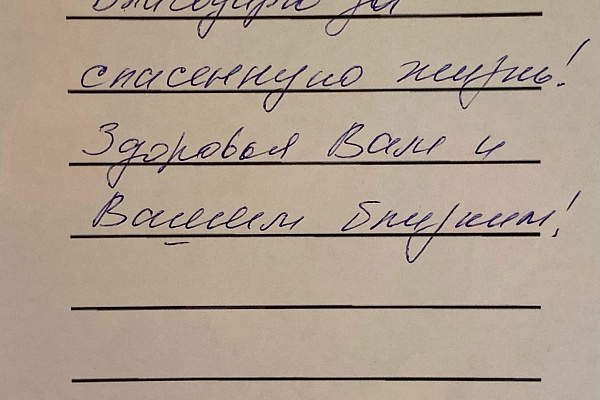 Благодарю за
спасенную жизнь!
Здоровья Вам и
Вашим близким!